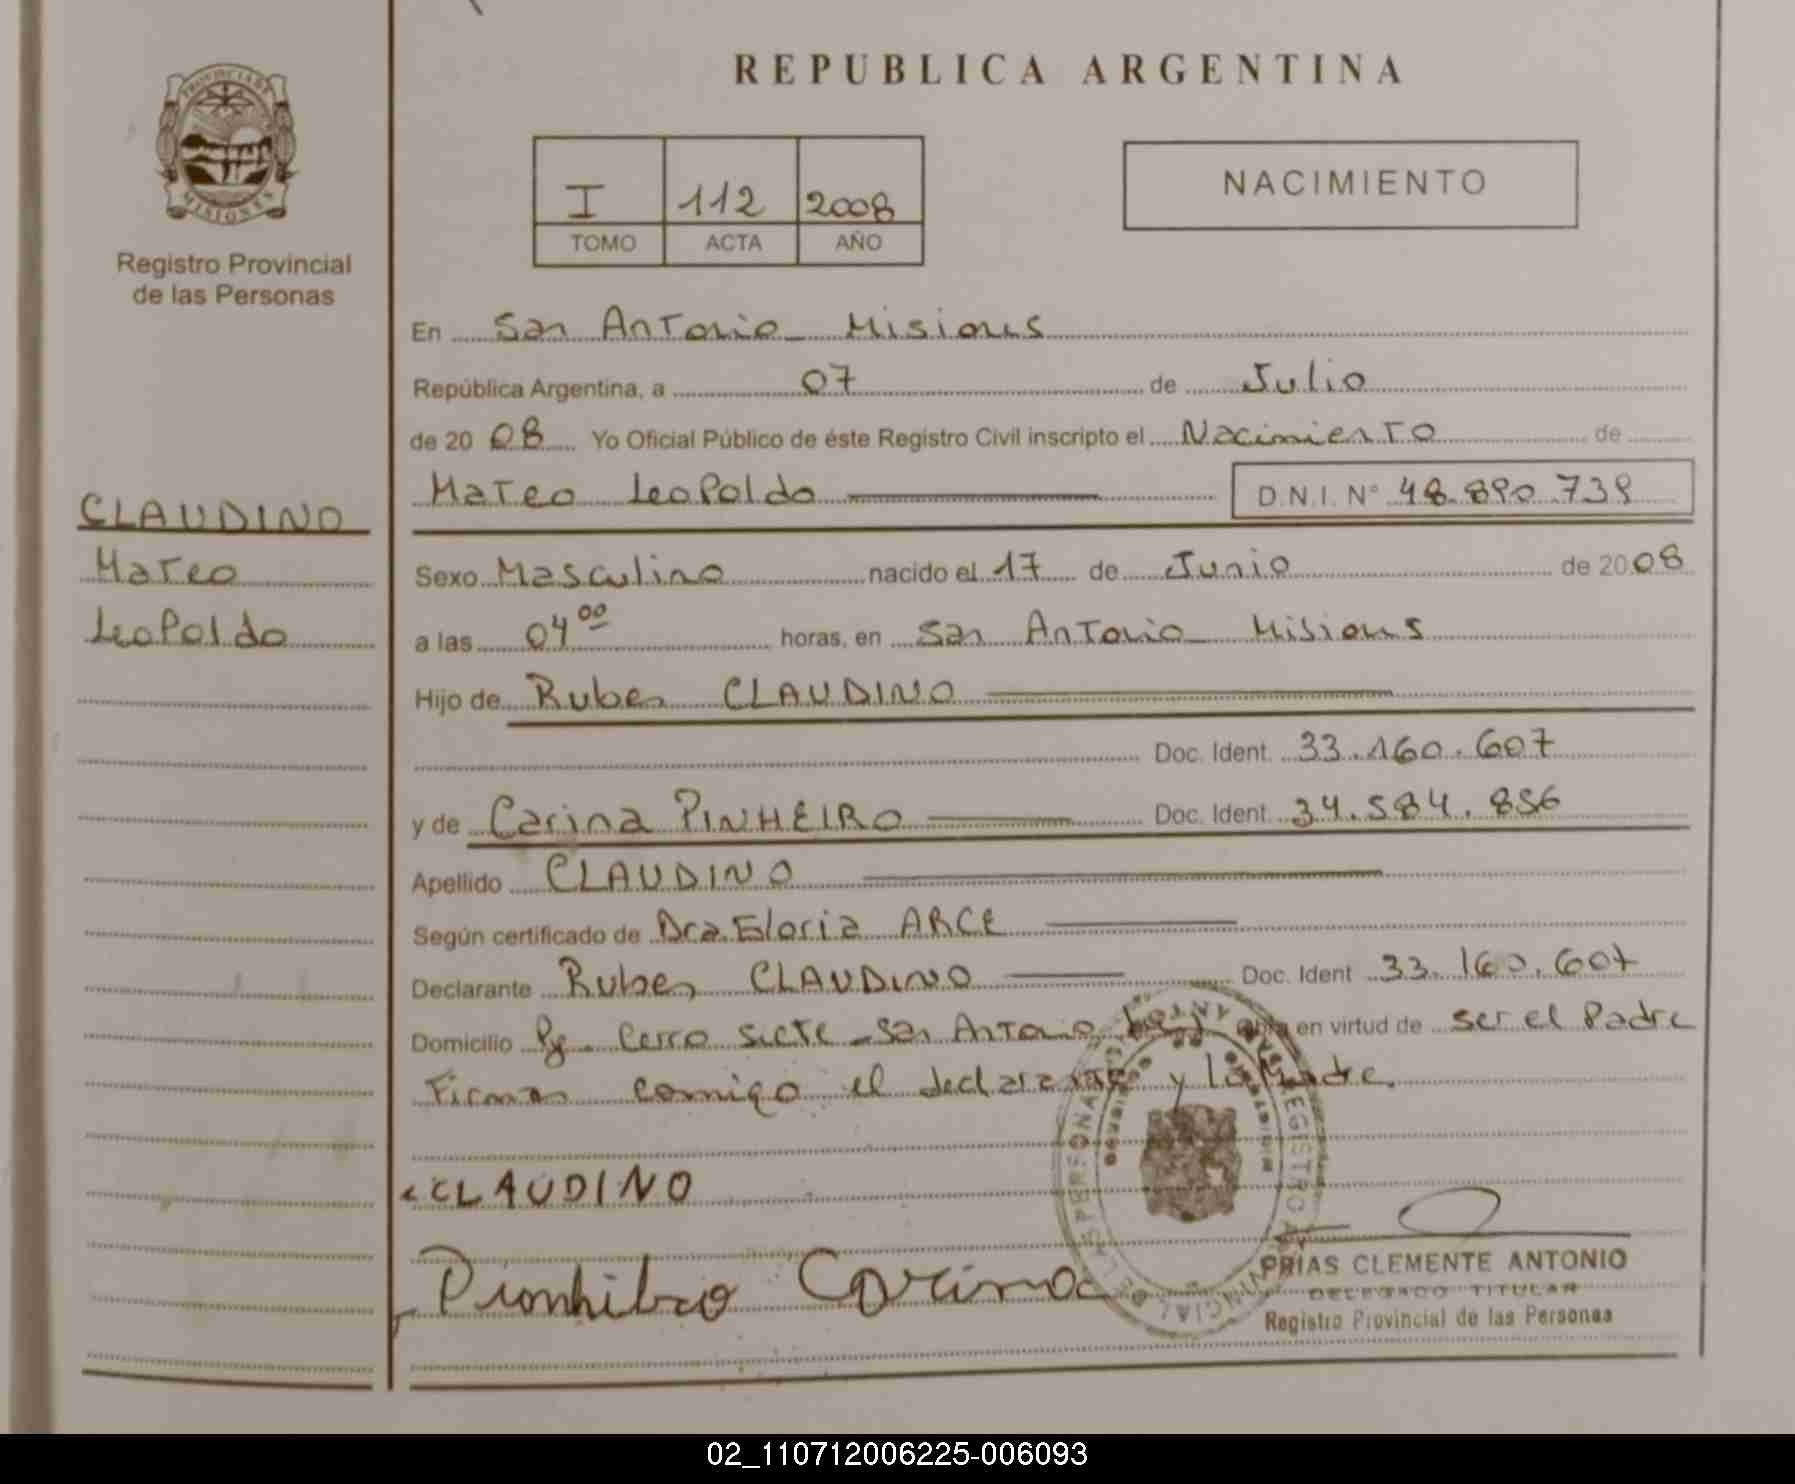 REPUBLICA ARGENTINA
PROVINCIA DE
MISIONES
Registro Provincial
de las Personas
I 112 2008
TOMO ACTA AÑO
NACIMIENTO
En San Antonio Misiones
República Argentina, a 07 de Julio
de 20 08 Yo Oficial Público de éste Registro Civil inscripto el Nacimiento de
Mateo Leopoldo D.N.I. Nº 48.890.739
CLAUDINO
Mateo
Leopoldo
Sexo Masculino nacido el 17 de Junio de 2008
a las 04 00 horas, en San Antonio Misiones
Hijo de Ruben CLAUDINO
Doc. Ident. 33.160.607
y de Carina PINHEIRO Doc. Ident. 34.584.856
Apellido CLAUDINO
Según certificado de Dra. Gloria ARCE
Declarante Ruben CLAUDINO Doc. Ident 33.160.607
Domicilio Pje. Cerro Siete - San Antonio en virtud de ser el Padre
Firman conmigo el declarante y la Madre.
CLAUDINO
Carina
PRIAS CLEMENTE ANTONIO
DELEGADO TITULAR
Registro Provincial de las Personas
02_110712006225-006093